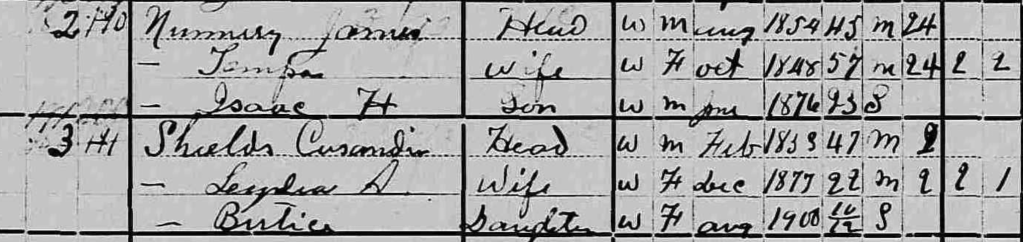 2 Nunnery James Head W M Aug 1854 45 M 24
— Tempa Wife W F Oct 1848 57 M 24 2 2
— Isaac H Son W M 1876 23 S
3 Shields Head W M Feb 1853 47 M 2
— A. Wife W F Dec 1877 22 M 2 2 1
— Daughter W F Aug 1900 10/12 S